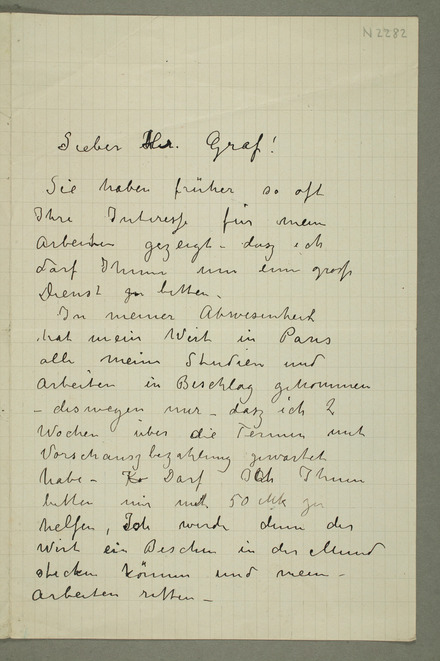 N 2282
Lieber Hr. Graf!
Sie haben früher so oft
Ihre Interesse für mein
Arbeiten gezeigt – dasz ich
darf Ihnen um ein gross
Dienst zu bitten.
In meiner Abwesenheit
hat mein Wirt in Paris
alle meine Studien und
Arbeiten in Beschlag genommen
– deswegen nur – dasz ich 2
Wochen über die Termin mit
Vorschauszbezahlung gewartet
habe – Darf Ich Ihnen
bitten mir mit 50 Mk zu
helfen, Ich werde dann der
Wirt ein Bischen in der Mund
stecken können und mein
Arbeiten retten –